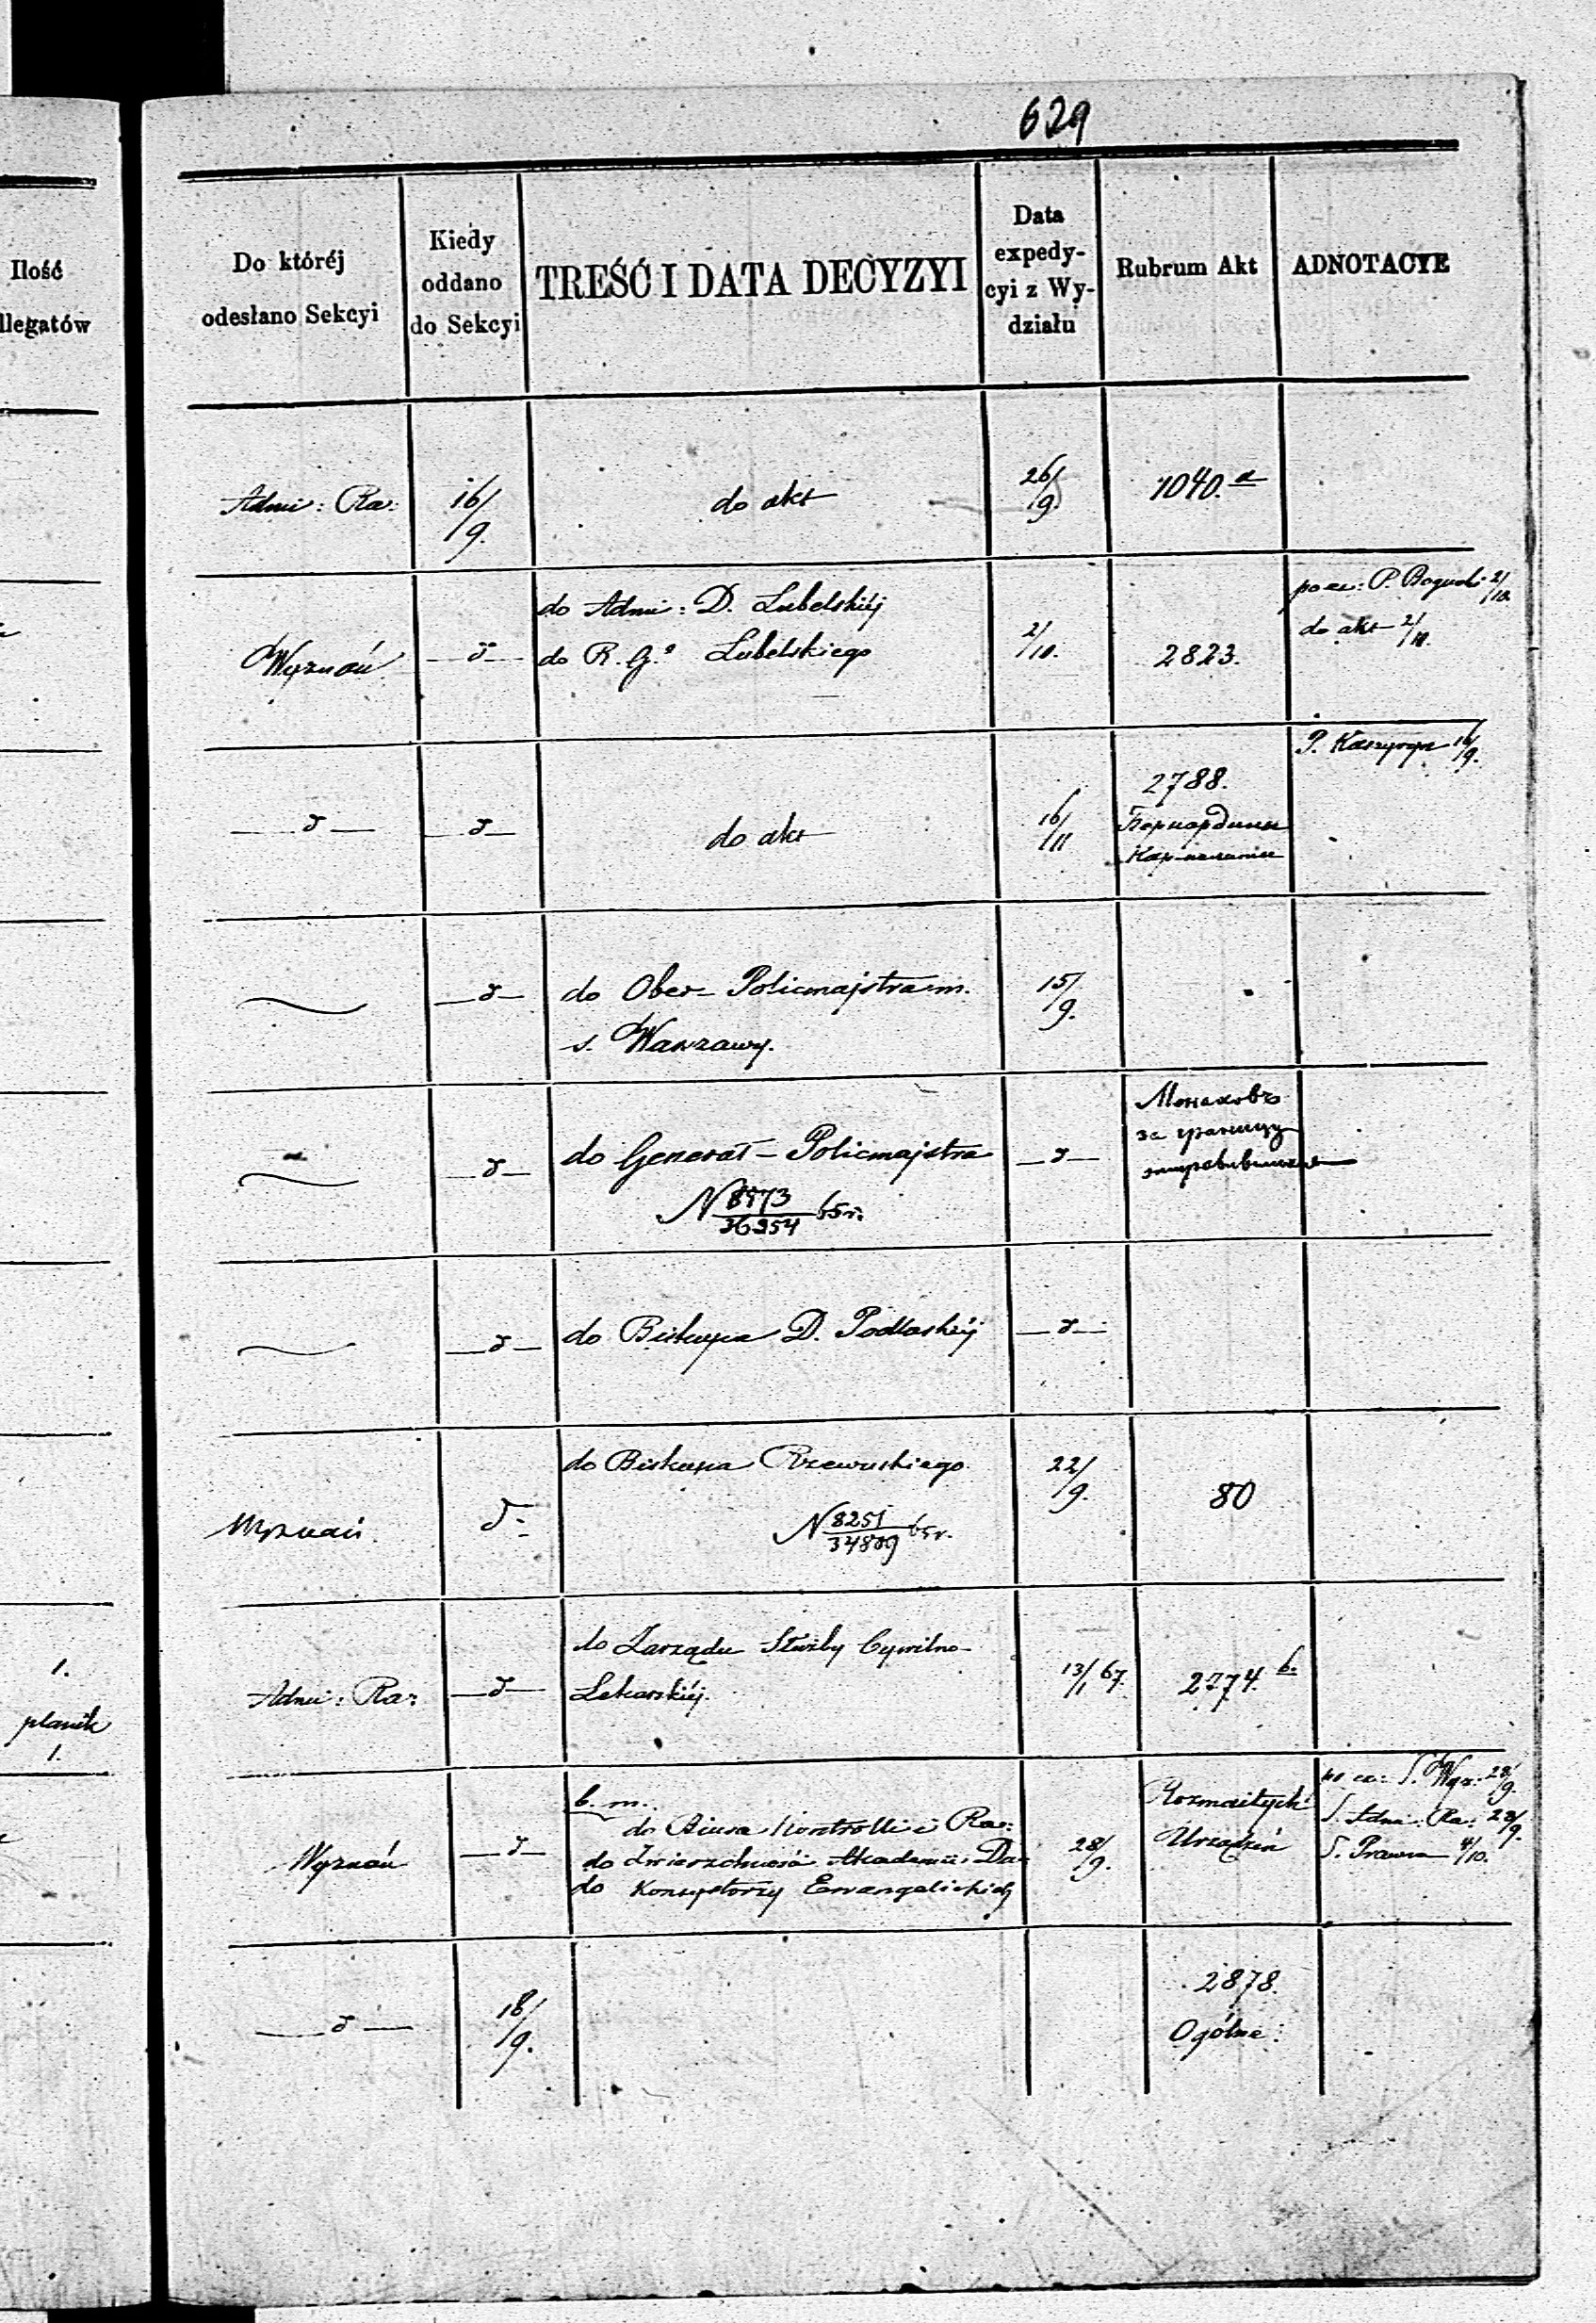 629
Ilość
llegatów
Do któréj
odesłano Sekcyi
Kiedy
oddano
do Sekcyi
TREŚĆ I DATA DECYZYI
Data
expedy-
cyi z Wy-
działu
Rubrum Akt
ADNOTACYE
Admi: Ra:
16/9.
do akt
26/9.
1040. a
Wyznań
d
do Admi: D. Lubelskiéj
do R. G.o Lubelskiego
2/10.
2823.
P. Boguski 2/10.
do akt
d
d
do akt
16/11
2788.
Бернардины
P. 16/9.
d
do Ober-Policmajstra m.
s. Warszawy.
15/9.
d
do Generał-Policmajstra
N 8573/36954 65r.
d
Монаховъ
за границу
d
do Biskupa D. Podlaskiéj
d
Wyznań.
d
do Biskupa Rzewuskiego.
N 8251/34809 65r.
22/9.
80
1.
planik
1.
Admi: Ra:
d
do Zarządu Służby Cywilno-
Lekarskiéj.
13/1 67.
2774. b.
Wyznań
d
b. m.
do Biura Kontrolli i Ra:
do Zwierzchności Akademii Du
do Konsystorzy Ewangelickich
28/9.
Rozmaitych
Urządzeń
S. Wyz: 28/9.
S. Adm: Ra: 28/9.
S. Prawna 4/10.
d
18/9.
2878.
Ogólne: